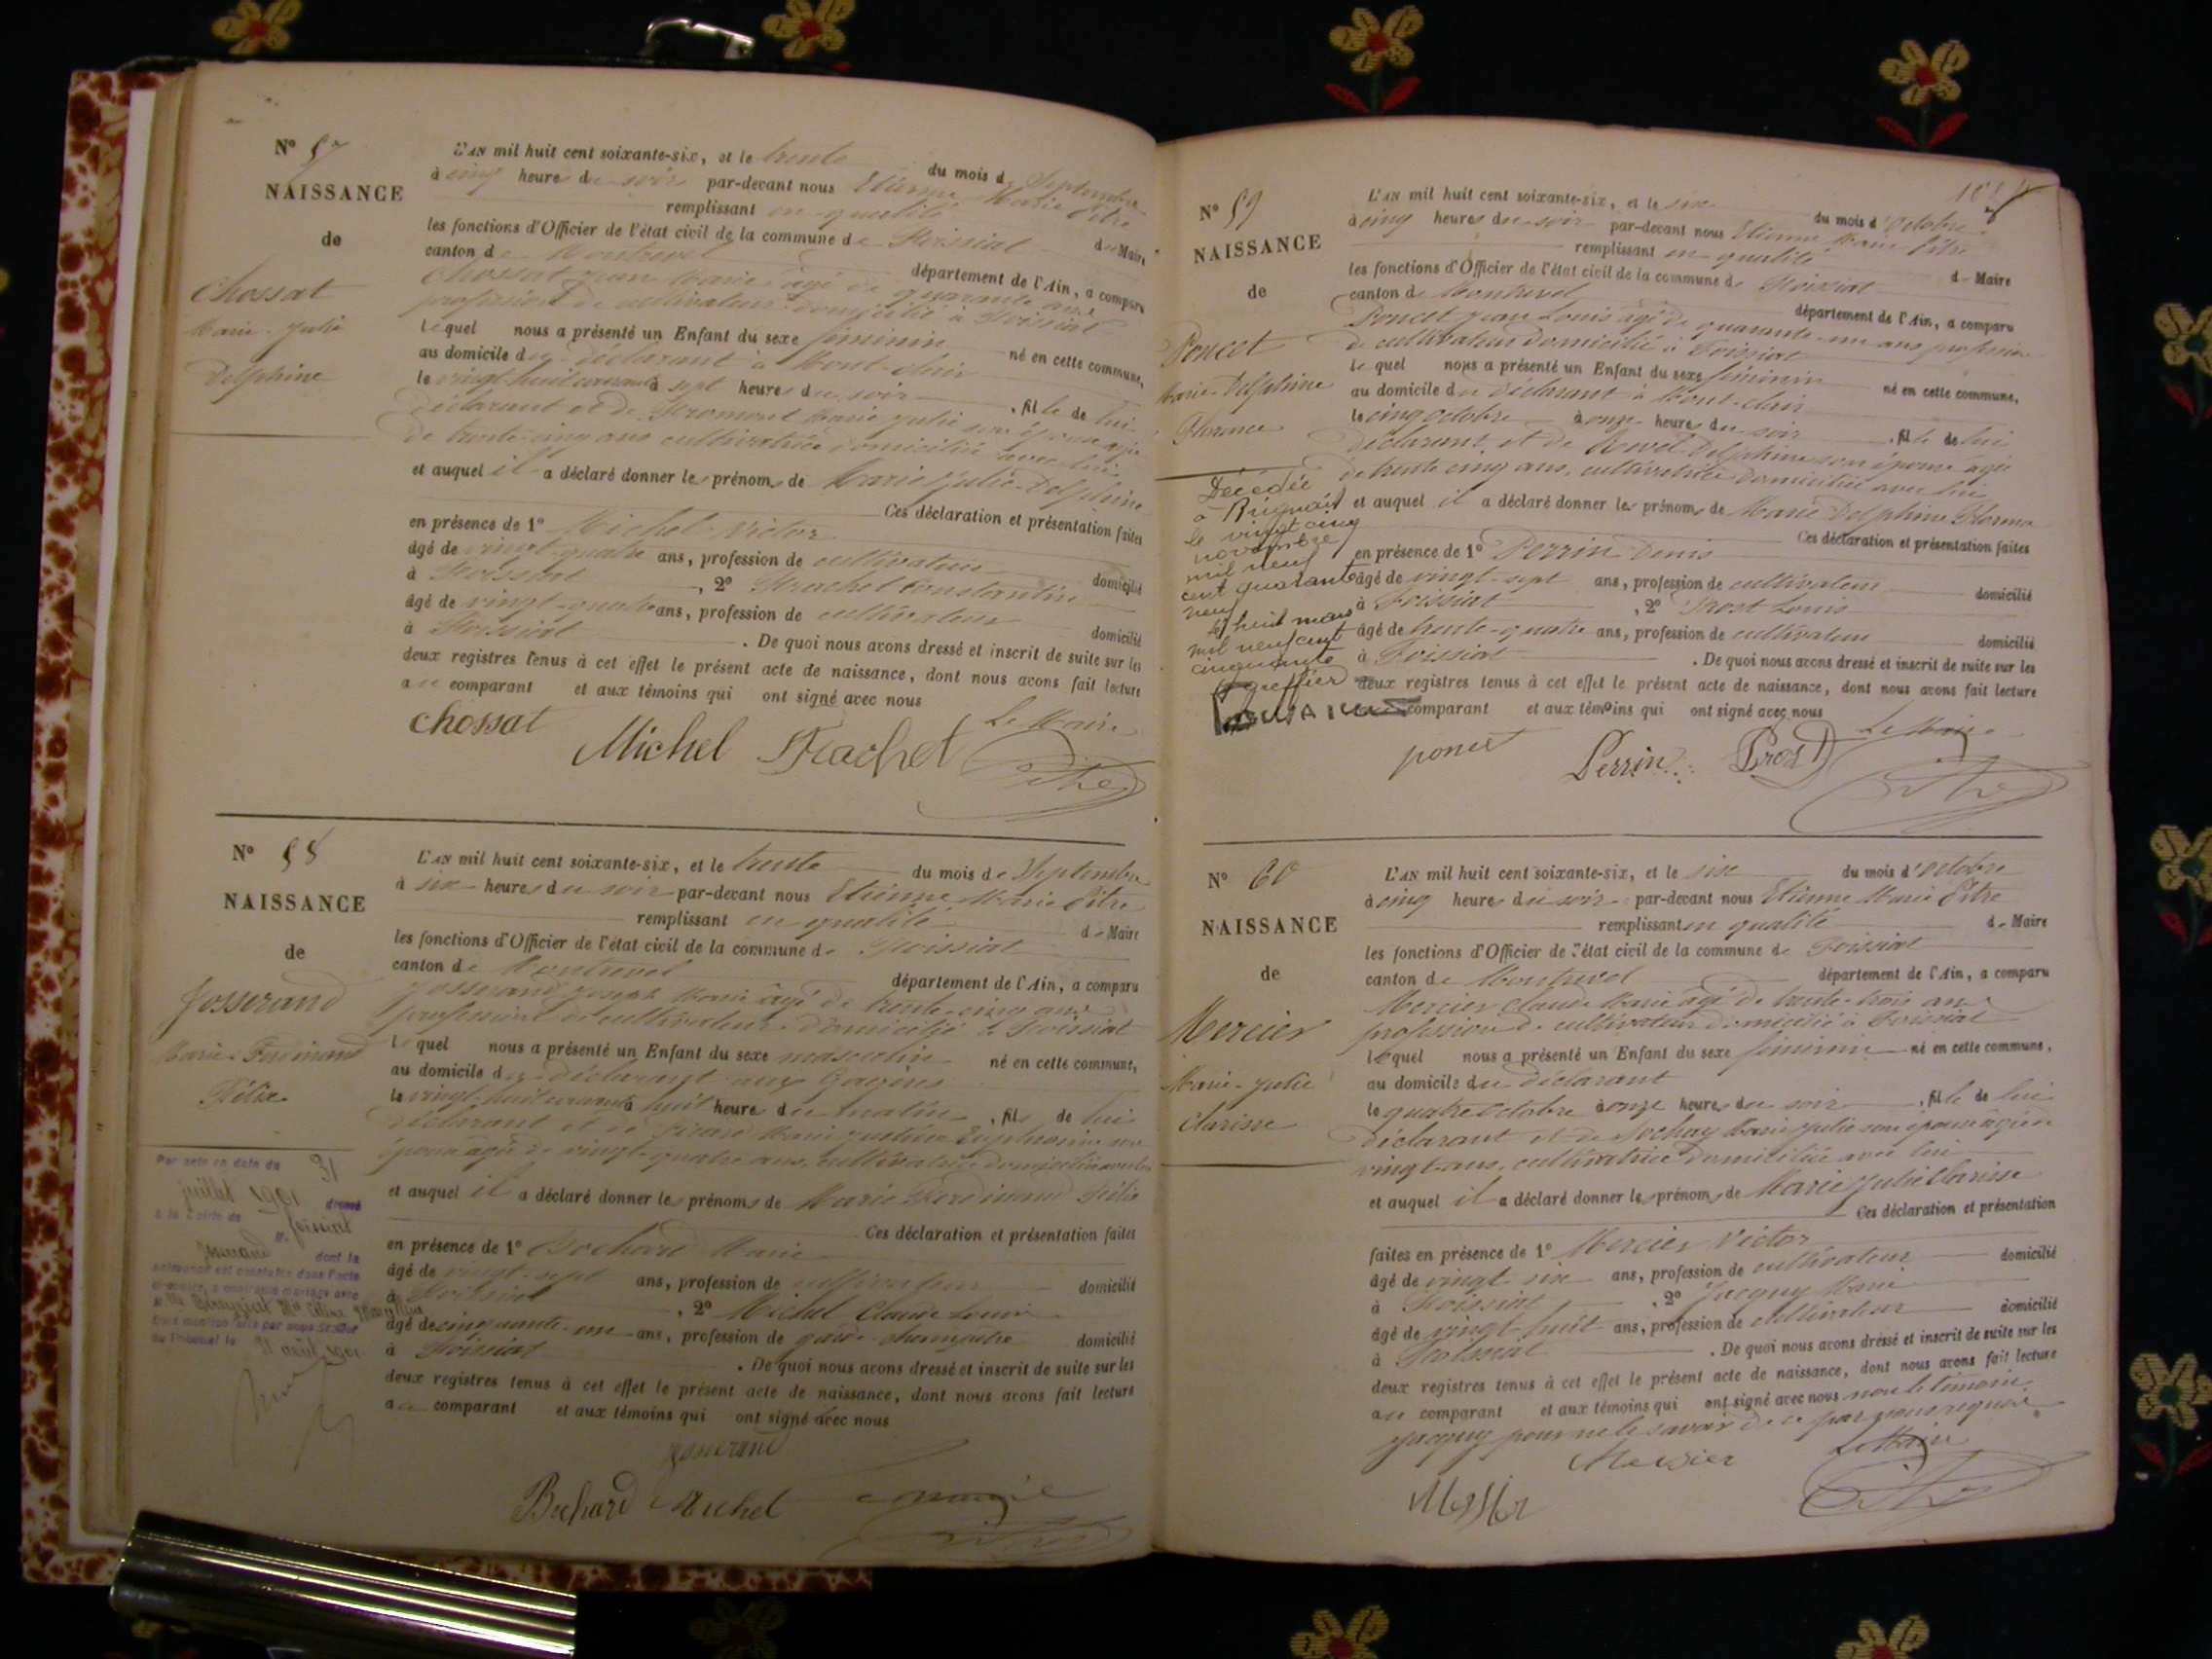 Nº 57
NAISSANCE
de
Chossat
Marie-Julie
Delphine
L'AN mil huit cent soixante-six, et le trente du mois de Septembre
à cinq heures du soir par-devant nous Etienne Marie Pitre
remplissant en qualité de Maire
les fonctions d'Officier de l'état civil de la commune de Foissiat
canton de Montrevel département de l'Ain, a comparu
Chossat Jean Marie âgé de quarante ans
profession de cultivateur domicilié à Foissiat
lequel nous a présenté un Enfant du sexe féminin né en cette commune,
au domicile du déclarant à Mont-clair
le vingt-huit courant à sept heures du soir, fille de lui
déclarant et de Fromont Marie Julie son épouse âgée
de trente-cinq ans cultivatrice domiciliée avec lui
et auquel il a déclaré donner les prénoms de Marie Julie-Delphine
Ces déclaration et présentation faites
en présence de 1º Michel Victor
âgé de vingt-quatre ans, profession de cultivateur domicilié
à Foissiat, 2º Frachet Constantin
âgé de vingt-quatre ans, profession de cultivateur domicilié
à Foissiat. De quoi nous avons dressé et inscrit de suite sur les
deux registres tenus à cet effet le présent acte de naissance, dont nous avons fait lecture
au comparant et aux témoins qui ont signé avec nous
Chossat Michel Frachet Le Maire
Pitre
Nº 58
NAISSANCE
de
Josserand
Marie-Ferdinand
Félix
L'AN mil huit cent soixante-six, et le trente du mois de Septembre
à six heures du soir par-devant nous Etienne Marie Pitre
remplissant en qualité de Maire
les fonctions d'Officier de l'état civil de la commune de Foissiat
canton de Montrevel département de l'Ain, a comparu
Josserand Joseph Marie âgé de trente-cinq ans
profession de cultivateur domicilié à Foissiat
lequel nous a présenté un Enfant du sexe masculin né en cette commune,
au domicile du déclarant aux
le vingt-huit courant à huit heures du matin, fils de lui
déclarant et de Marie Euphrosine son
épouse âgée de vingt-quatre ans, cultivatrice domiciliée avec lui
et auquel il a déclaré donner les prénoms de Marie Ferdinand Félix
Ces déclaration et présentation faites
en présence de 1º Bochard Marie
âgé de vingt-sept ans, profession de cultivateur domicilié
à Foissiat, 2º Michel Claude Louis
âgé de cinquante-un ans, profession de garde-champêtre domicilié
à Foissiat. De quoi nous avons dressé et inscrit de suite sur les
deux registres tenus à cet effet le présent acte de naissance, dont nous avons fait lecture
au comparant et aux témoins qui ont signé avec nous
Josserand
Bochard Michel
Pitre
Par acte en date du 31
juillet 1901 dressé
à la mairie de Foissiat
M. Josserand dont la
naissance est constatée dans l'acte
ci-contre, a contracté mariage avec
du Tribunal le 31 août 1901
Nº 59
NAISSANCE
de
Poncet
Marie-Delphine
Florence
L'AN mil huit cent soixante-six, et le six du mois d'Octobre
à cinq heures du soir par-devant nous Etienne Marie Pitre
remplissant en qualité de Maire
les fonctions d'Officier de l'état civil de la commune de Foissiat
canton de Montrevel département de l'Ain, a comparu
Poncet Jean Louis âgé de quarante-un ans profession
de cultivateur domicilié à Foissiat
lequel nous a présenté un Enfant du sexe féminin né en cette commune,
au domicile du déclarant à Mont-clair
le cinq octobre à onze heures du soir, fille de lui
déclarant et de Revel Delphine son épouse âgée
de trente cinq ans, cultivatrice domiciliée avec lui
et auquel il a déclaré donner les prénoms de Marie Delphine Florence
Ces déclaration et présentation faites
en présence de 1º Perrin Denis
âgé de vingt-sept ans, profession de cultivateur domicilié
à Foissiat, 2º Prost Louis
âgé de trente-quatre ans, profession de cultivateur domicilié
à Foissiat. De quoi nous avons dressé et inscrit de suite sur les
deux registres tenus à cet effet le présent acte de naissance, dont nous avons fait lecture
comparant et aux témoins qui ont signé avec nous
poncet Perrin Prost Le Maire
Pitre
Décédée
à Brignais
le vingt cinq
novembre
mil neuf
cent quarante
neuf
Le huit mars
mil neuf cent
cinquante
Le greffier
Nº 60
NAISSANCE
de
Mercier
Marie-Julie
Clarisse
L'AN mil huit cent soixante-six, et le six du mois d'octobre
à cinq heures du soir par-devant nous Etienne Marie Pitre
remplissant en qualité de Maire
les fonctions d'Officier de l'état civil de la commune de Foissiat
canton de Montrevel département de l'Ain, a comparu
Mercier Claude Marie âgé de trente-trois ans
profession de cultivateur domicilié à Foissiat
lequel nous a présenté un Enfant du sexe féminin né en cette commune,
au domicile du déclarant
le quatre Octobre à onze heures du soir, fille de lui
déclarant et de Sochay Marie Julie son épouse âgée de
vingt ans, cultivatrice domiciliée avec lui
et auquel il a déclaré donner les prénoms de Marie Julie Clarisse
Ces déclaration et présentation
faites en présence de 1º Mercier Victor
âgé de vingt six ans, profession de cultivateur domicilié
à Foissiat, 2º Jacquy Marie
âgé de vingt-huit ans, profession de cultivateur domicilié
à Foissiat. De quoi nous avons dressé et inscrit de suite sur les
deux registres tenus à cet effet le présent acte de naissance, dont nous avons fait lecture
au comparant et aux témoins qui ont signé avec nous non le témoin
Jacquy pour ne le savoir de ce par nous requis.
Mercier Le Maire
Pitre